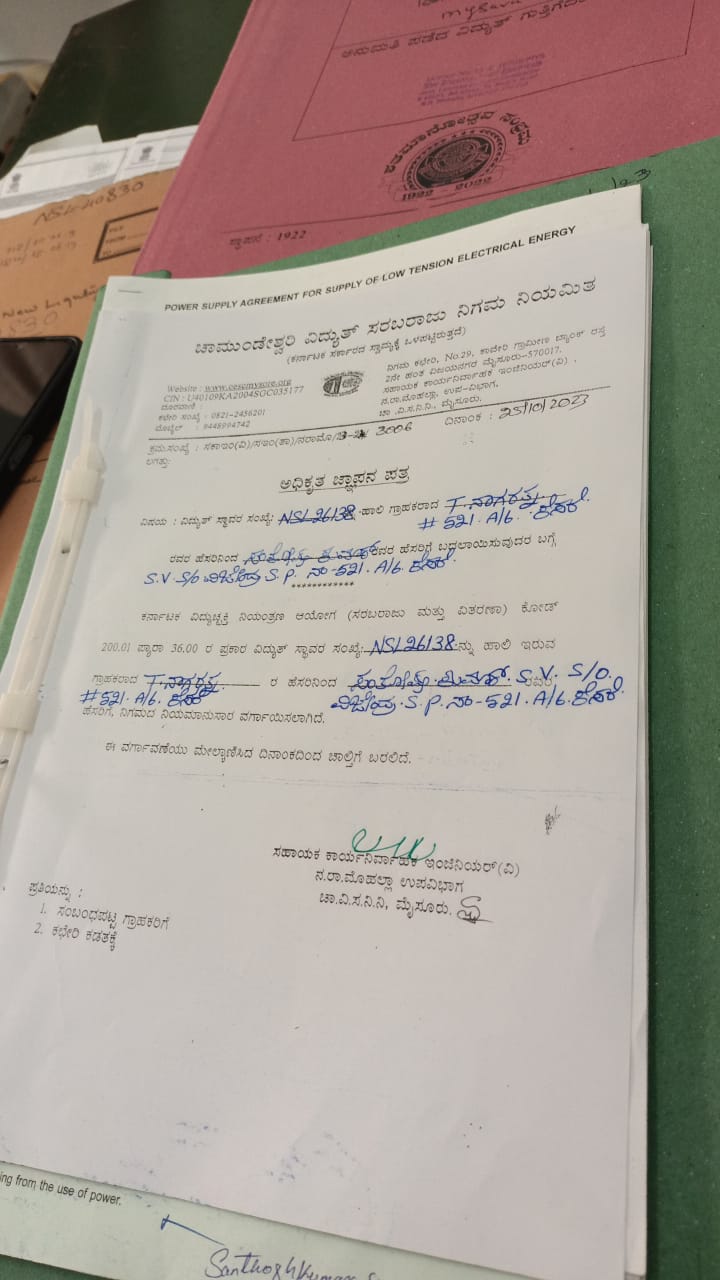 mysuru
ಅನುಮತಿ ಪಡೆದ ವಿದ್ಯುತ್ ಗುತ್ತಿಗೆದಾ
ಶತಮಾನೋತ್ಸವ ಸಂಭ್ರಮ
1922 2022
ಸ್ಥಾಪನೆ : 1922
NSL40830
FILE
FROM
TO
New Lighting
830
POWER SUPPLY AGREEMENT FOR SUPPLY OF LOW TENSION ELECTRICAL ENERGY
ಚಾಮುಂಡೇಶ್ವರಿ ವಿದ್ಯುತ್ ಸರಬರಾಜು ನಿಗಮ ನಿಯಮಿತ
(ಕರ್ನಾಟಕ ಸರ್ಕಾರದ ಸ್ವಾಮ್ಯಕ್ಕೆ ಒಳಪಟ್ಟಿರುತ್ತದೆ)
Website : www.cescmysore.org
CIN : U40109KA2004SGC035177
ದೂರವಾಣಿ :
ಕಛೇರಿ ಸಂಖ್ಯೆ : 0821-2456201
ಮೊಬೈಲ್ : 9448994742
ನಿಗಮ ಕಛೇರಿ, No.29, ಕಾವೇರಿ ಗ್ರಾಮೀಣ ಬ್ಯಾಂಕ್ ರಸ್ತೆ
2ನೇ ಹಂತ ವಿಜಯನಗರ ಮೈಸೂರು-570017.
ಸಹಾಯಕ ಕಾರ್ಯನಿರ್ವಾಹಕ ಇಂಜಿನಿಯರ್(ವಿ) ,
ನ.ರಾ.ಮೊಹಲ್ಲಾ ಉಪ-ವಿಭಾಗ,
ಚಾ .ವಿ.ಸ.ನಿ.ನಿ., ಮೈಸೂರು.
ಕ್ರಮ.ಸಂಖ್ಯೆ : ಸಕಾಇಂ(ವಿ)/ಸಇಂ(ತಾ)/ನರಾಮೊ/ 3006 ದಿನಾಂಕ : 25/10/2023
ಲಗತ್ತು:
ಅಧಿಕೃತ ಜ್ಞಾಪನ ಪತ್ರ
ವಿಷಯ : ವಿದ್ಯುತ್ ಸ್ಥಾವರ ಸಂಖ್ಯೆ: NSL26138 ಹಾಲಿ ಗ್ರಾಹಕರಾದ T. ನಾಗರತ್ನ.
# 521. A/6. ಕೇಸರೆ.
ರವರ ಹೆಸರಿನಿಂದ ಸಂತೋಷ್ ಕುಮಾರ್ ರವರ ಹೆಸರಿಗೆ ಬದಲಾಯಿಸುವುದರ ಬಗ್ಗೆ
S.V S/o ವಿಜೇಂದ್ರ S.P. ನಂ-521. A/6. ಕೇಸರೆ.
************
ಕರ್ನಾಟಕ ವಿದ್ಯುಚ್ಛಕ್ತಿ ನಿಯಂತ್ರಣ ಆಯೋಗ (ಸರಬರಾಜು ಮತ್ತು ವಿತರಣಾ) ಕೋಡ್
200.01 ಪ್ಯಾರಾ 36.00 ರ ಪ್ರಕಾರ ವಿದ್ಯುತ್ ಸ್ಥಾವರ ಸಂಖ್ಯೆ: NSL26138 ನ್ನು ಹಾಲಿ ಇರುವ
ಗ್ರಾಹಕರಾದ T. ನಾಗರತ್ನ. ರ ಹೆಸರಿನಿಂದ ಸಂತೋಷ್ ಕುಮಾರ್. S.V. S/O.
# 521. A/6. ಕೇಸರೆ ವಿಜೇಂದ್ರ. S.P. ನಂ-521. A/6. ಕೇಸರೆ.
ಹೆಸರಿಗೆ, ನಿಗಮದ ನಿಯಮಾನುಸಾರ ವರ್ಗಾಯಿಸಲಾಗಿದೆ.
ಈ ವರ್ಗಾವಣೆಯು ಮೇಲ್ಕಾಣಿಸಿದ ದಿನಾಂಕದಿಂದ ಚಾಲ್ತಿಗೆ ಬರಲಿದೆ.
ಸಹಾಯಕ ಕಾರ್ಯನಿರ್ವಾಹಕ ಇಂಜಿನಿಯರ್(ವಿ)
ನ.ರಾ.ಮೊಹಲ್ಲಾ ಉಪವಿಭಾಗ
ಚಾ.ವಿ.ಸ.ನಿ.ನಿ, ಮೈಸೂರು.
ಪ್ರತಿಯನ್ನು :
1. ಸಂಬಂಧಪಟ್ಟ ಗ್ರಾಹಕರಿಗೆ
2. ಕಛೇರಿ ಕಡತಕ್ಕೆ
ing from the use of power.
Santhosh Kumar S